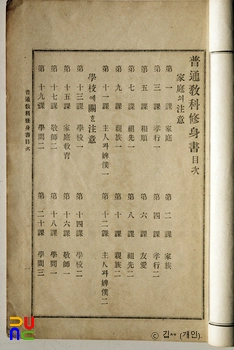 普通教科修身書目次
家庭의注意
第一課 家庭
第二課 家族
第三課 孝行一
第四課 孝行二
第五課 和順
第六課 友愛
第七課 祖先一
第八課 祖先二
第九課 親族一
第十課 親族二
第十一課 主人과婢僕一
第十二課 主人과婢僕二
學校에關한注意
第十三課 學校一
第十四課 學校二
第十五課 家庭敎育
第十六課 敬師一
第十七課 敬師二
第十八課 學問一
第十九課 學問二
第二十課 學問三
普通教科修身書目次
ⓒ 김** (개인)